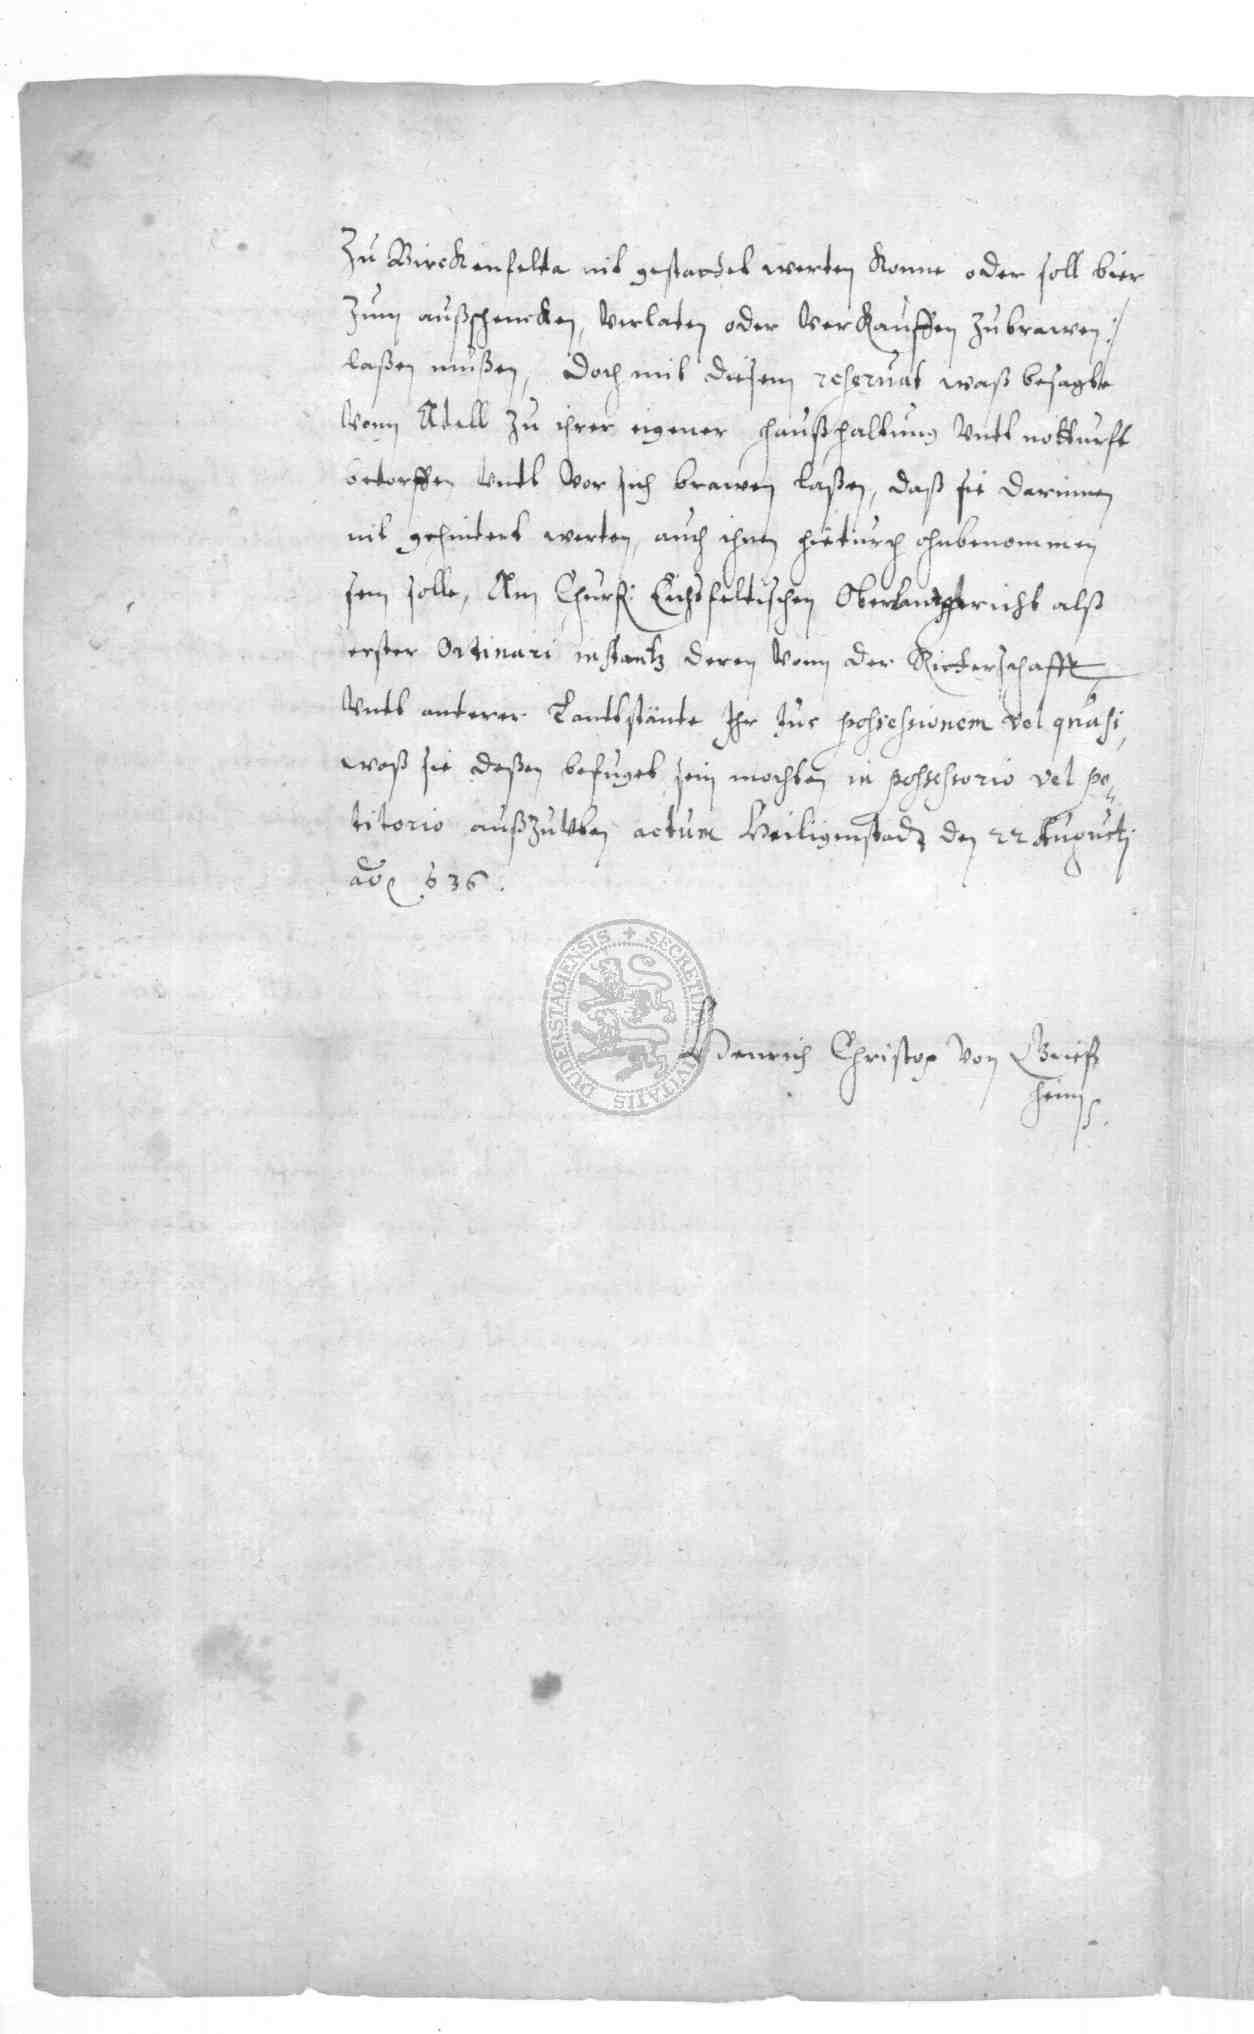 Zu Birckenfelde nit gestattet werden konne oder soll bier
Zum außschencken, verlaten oder verkauffen zubrawen :/
laßen mußen, doch mit diesem reservat waß besagte
vom Adell zu ihrer eigener haußhaltung undt notturfft
bedorffen undt vor sich brawen laßen, daß sie darinnen
nit gehindert werden, auch ihnen hiedurch ohnbenommen
sein solle, Am Churf: Eichsfeldischen Oberlandtgericht alß
erster Ordinari instantz deren vonn der Ritterschafft
undt anderer Landtstände Ihr Jus possessionem vel quasi,
waß sie deßen befuget sein mochten in possessorio vel pe-
titorio außzuüben actum Heiligenstadt den 22 Augusti
ao 636.
Henrich Christop von Grieß
heim
SECRETUM CIVITATIS DUDERSTADIENSIS